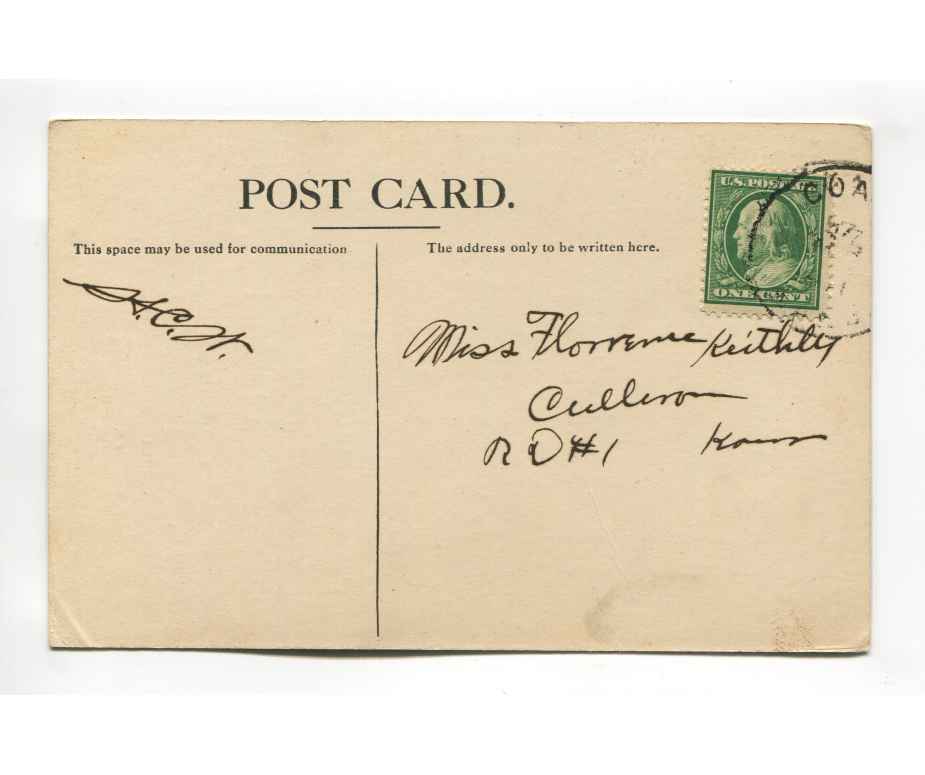 POST CARD.
This space may be used for communication
The address only to be written here.
U.S. POSTAGE
ONE CENT
COA
H.C.W.
Miss Florrence Keithley
Cullison
R D #1 Kans